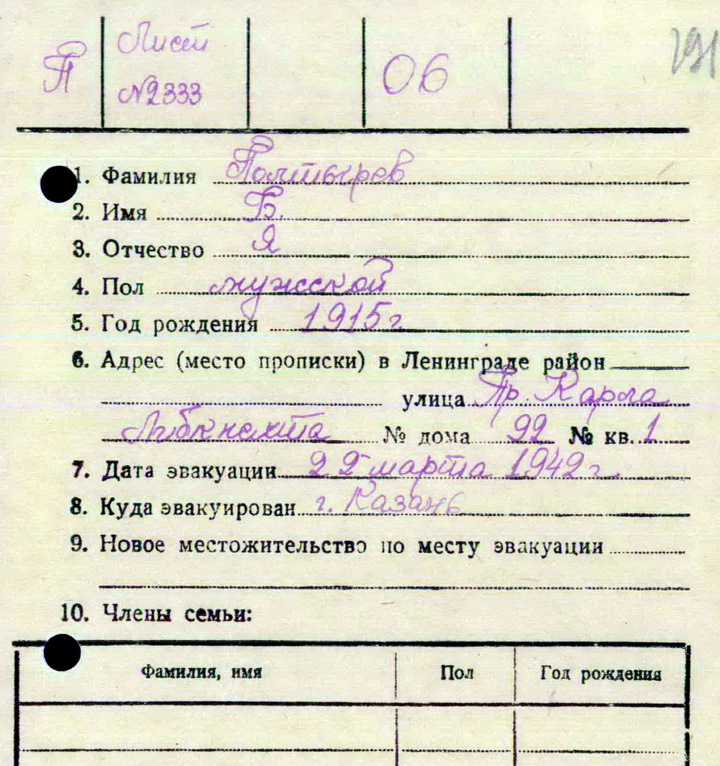 П
Лист
№2333
06
1. Фамилия Полтырев
2. Имя Б.
3. Отчество Я
4. Пол мужской
5. Год рождения 1915г.
6. Адрес (место прописки) в Ленинграде район
улица Пр. Карла
Либкнехта № дома 92 № кв. 1
7. Дата эвакуации 22 марта 1942г.
8. Куда эвакуирован г. Казань
9. Новое местожительство по месту эвакуации
10. Члены семьи:
Фамилия, имя Пол Год рождения